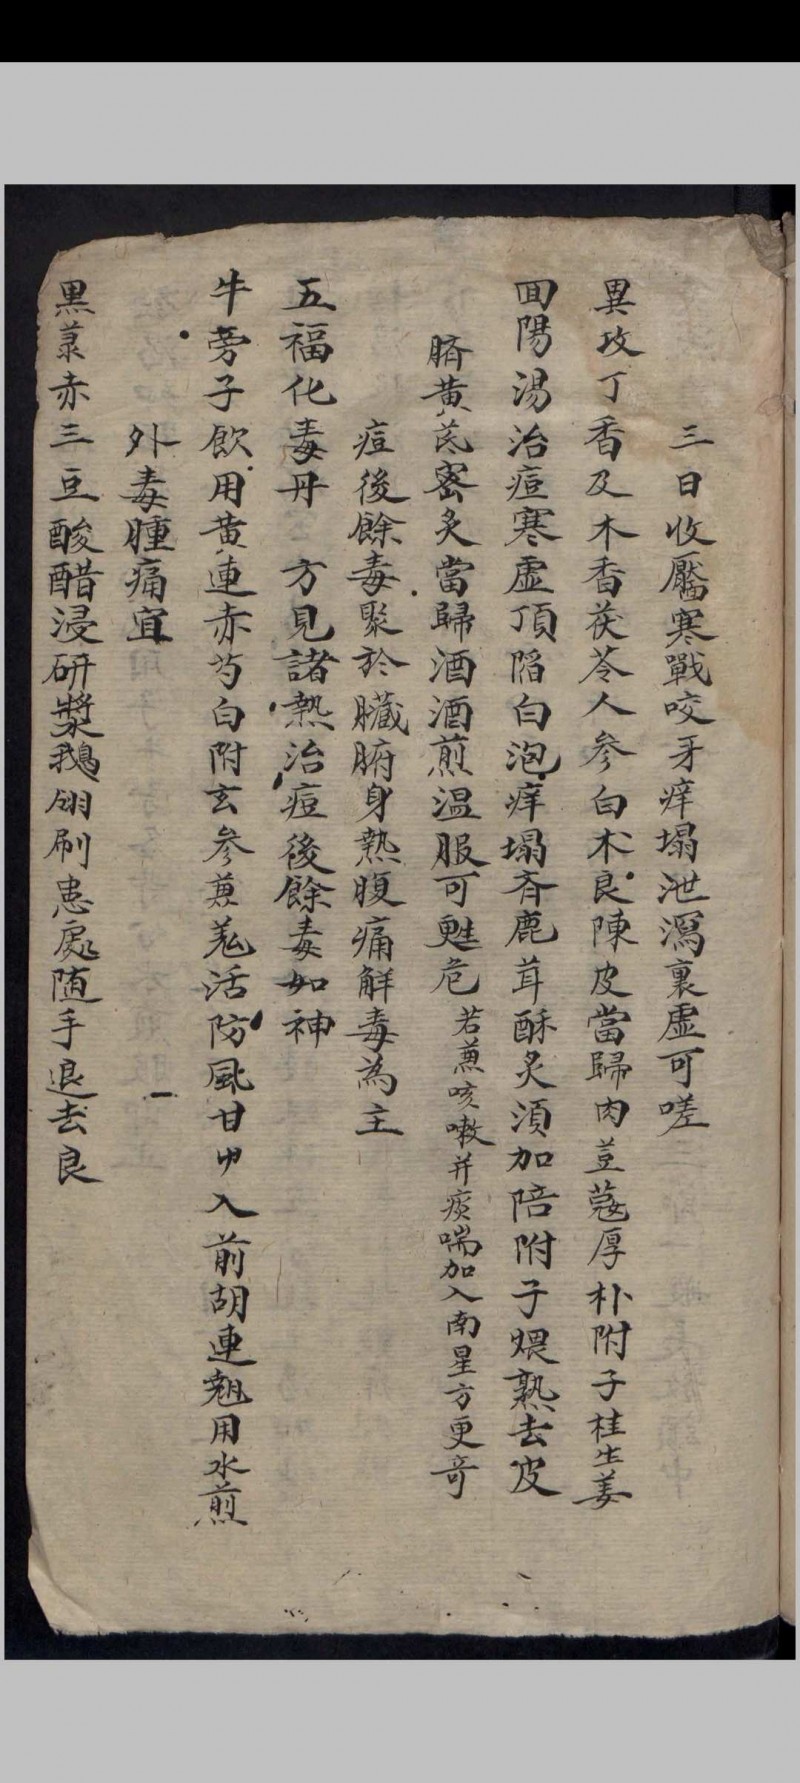 三日收靨寒戰咬牙痒塌泄瀉裏虛可嗟
異攻丁香及木香茯苓人參白朮良陳皮當歸肉荳蔻厚朴附子桂生姜
回陽湯治痘寒虛頂陷白泡痒塌斉鹿茸酥炙須加陪附子煨熟去皮
臍黃茋宻炙當歸酒酒煎温服可甦危 若兼咳嗽并痰喘加入南星方更奇
痘後餘毒聚於臟腑身熱腹痛解毒為主
五福化毒丹 方見諸熱治痘後餘毒如神
牛旁子飲用黃連赤芍白附玄參兼羗活防風甘艸入前胡連翹用水煎
外毒腫痛宜
黑菉赤三豆酸醋浸研漿鵝翎刷患處随手退去良